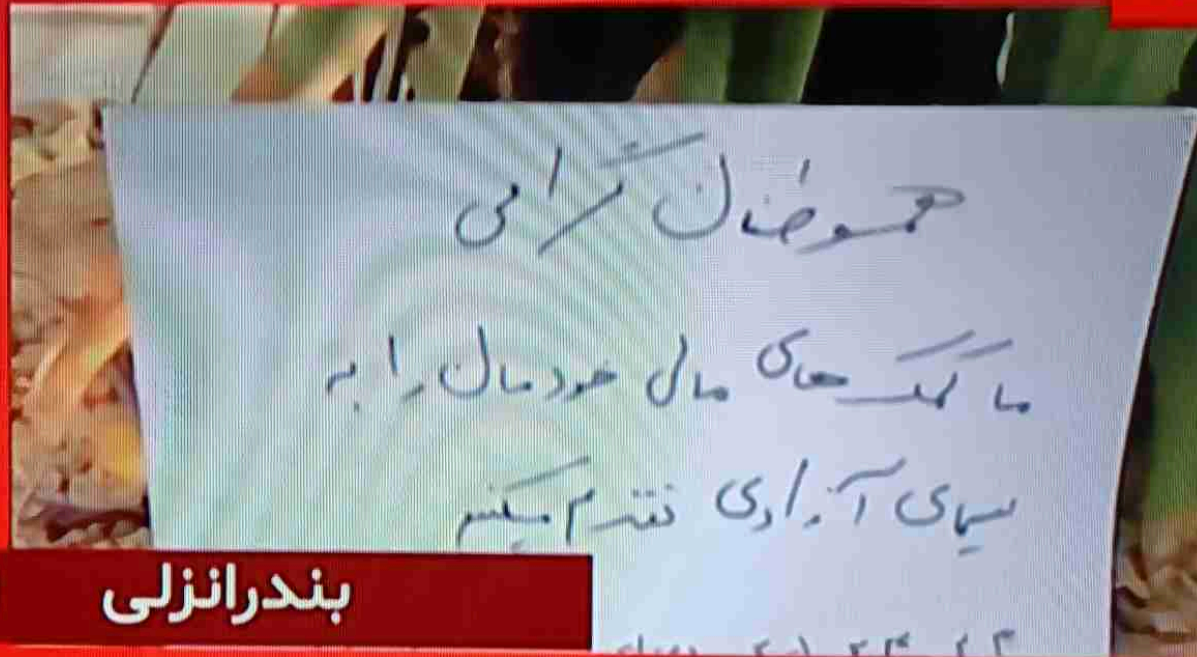 هموطنان گرامی
ما کمک های مالی خودمان را به
سیمای آزادی تقدیم میکنیم
بندرانزلی